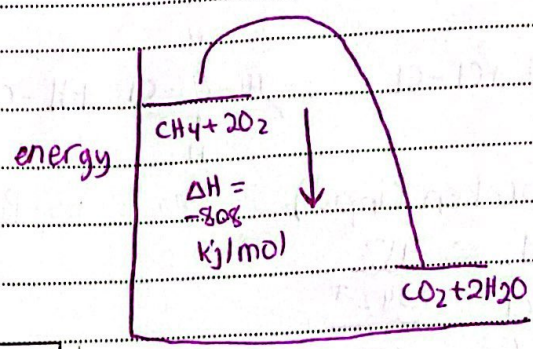 energy
CH4+2O2
ΔH =
-808
kj/mol
CO2+2H2O